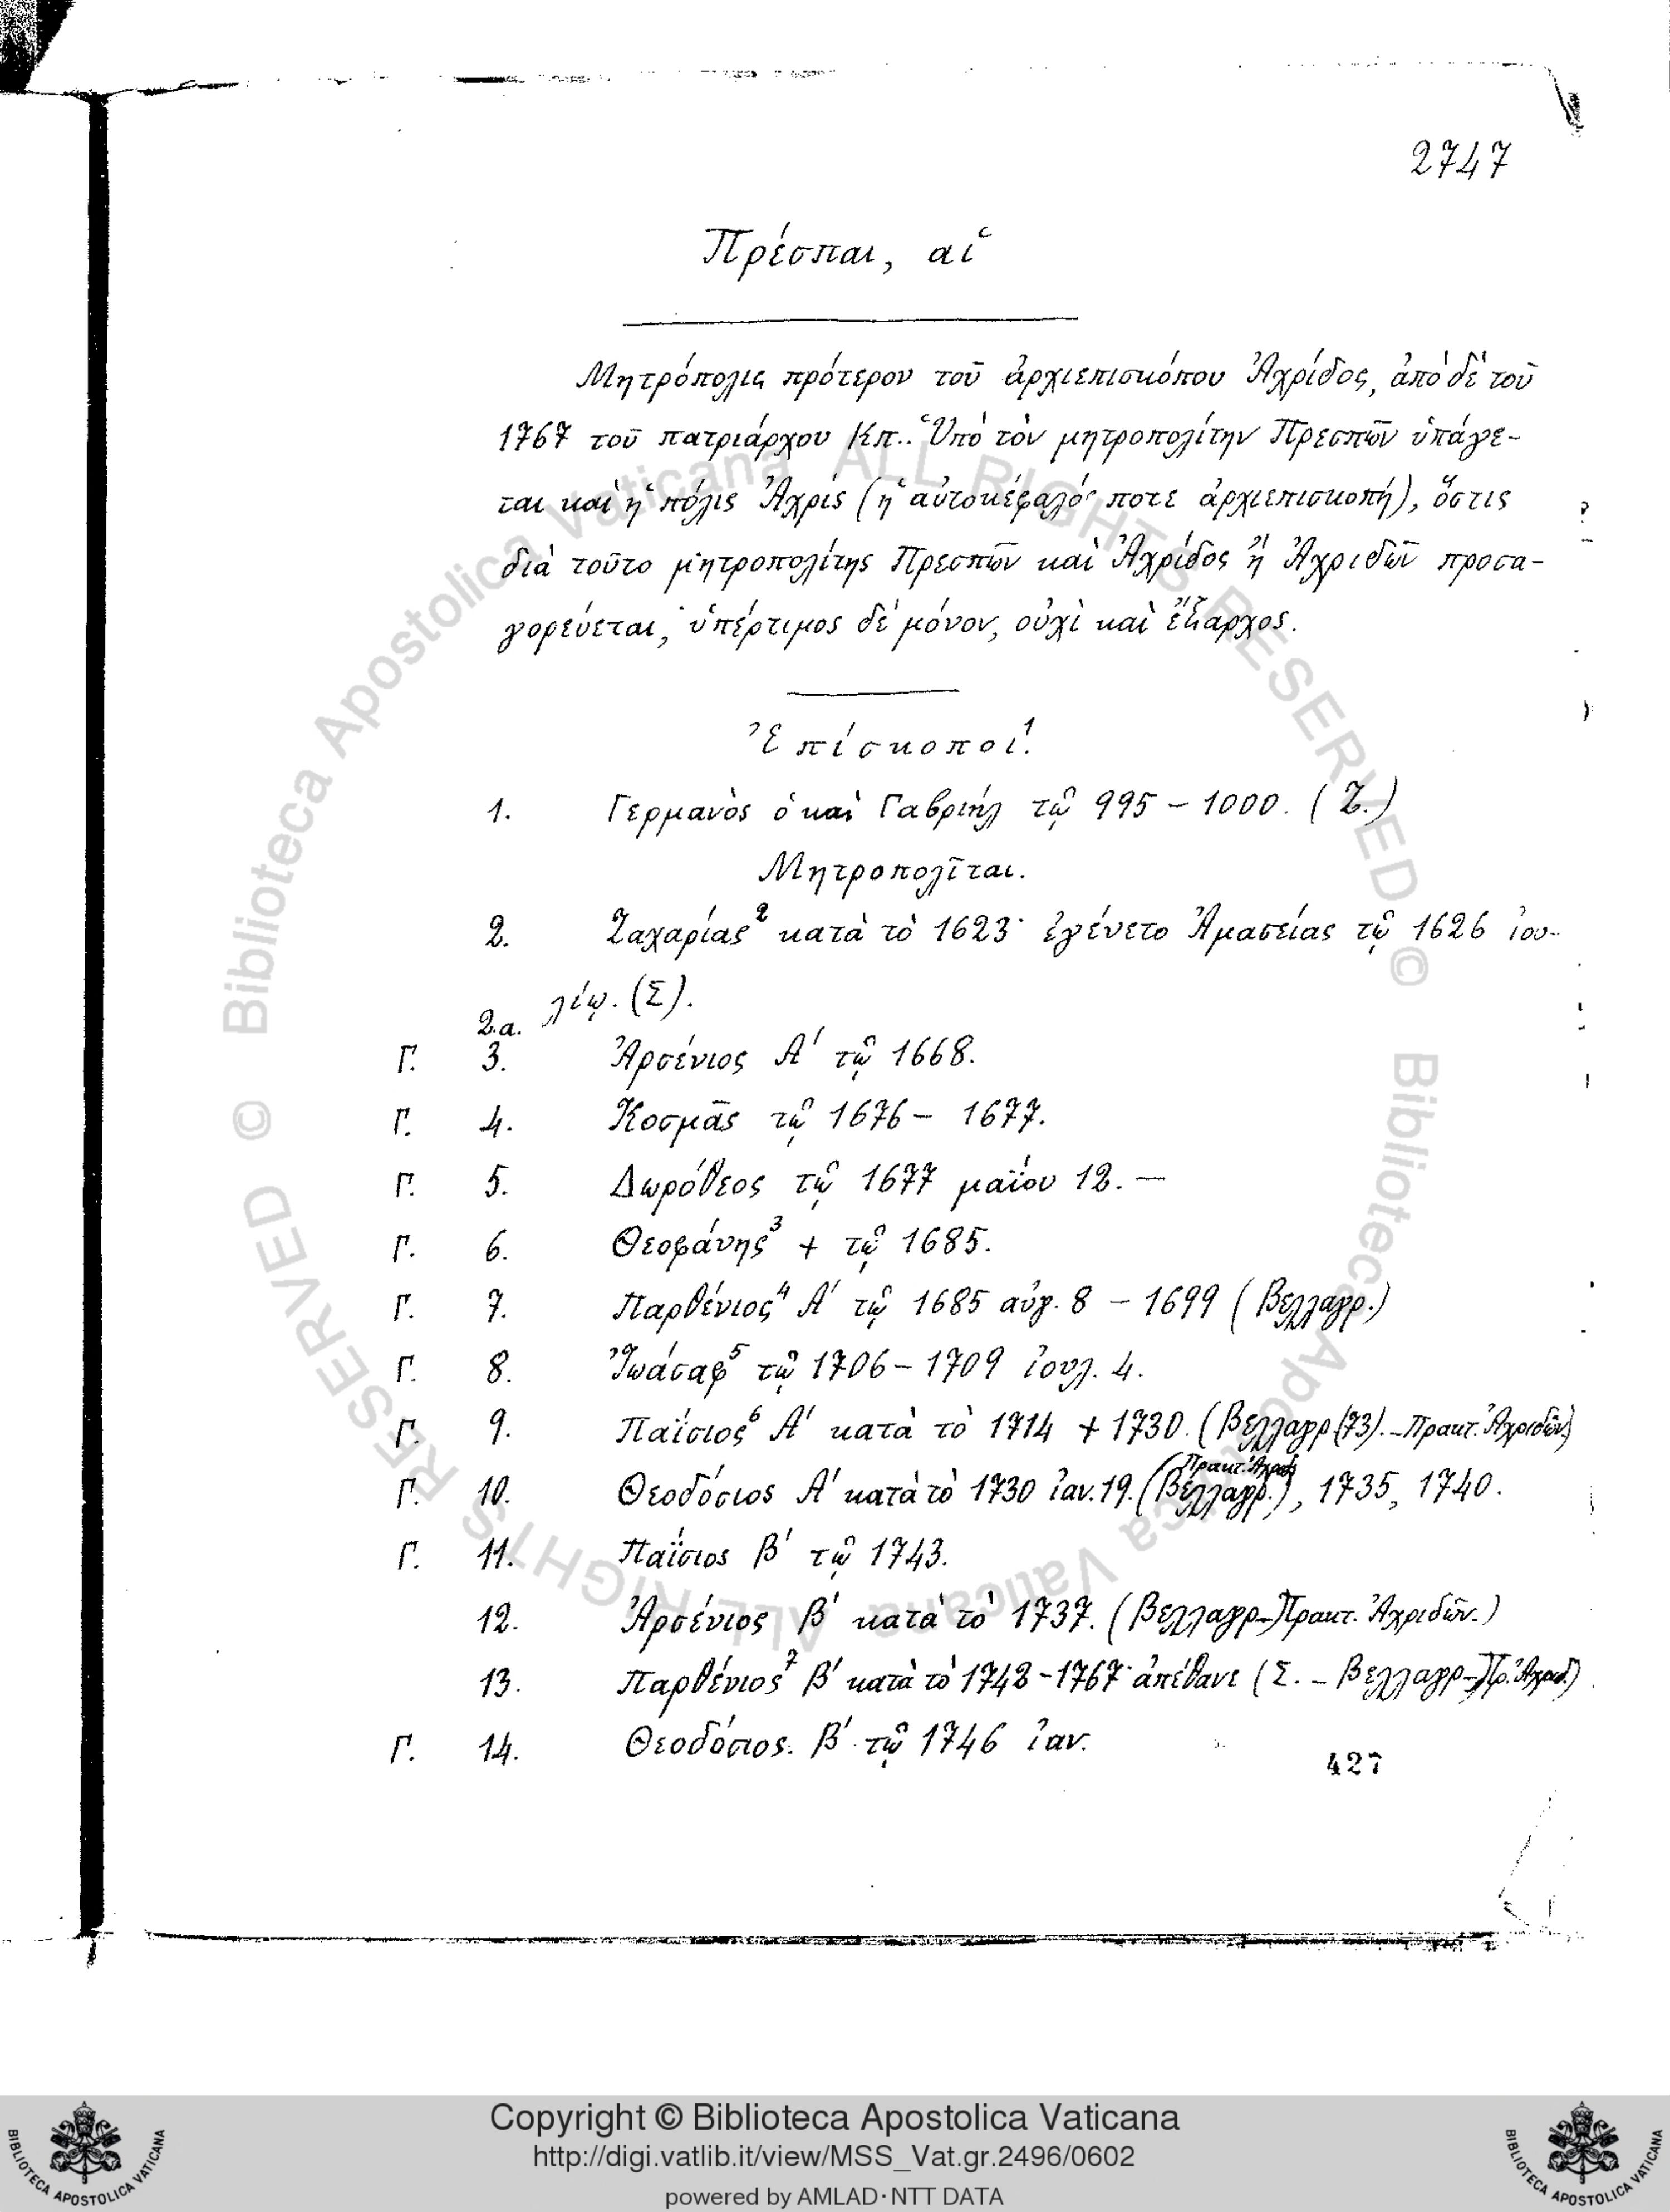 2747
Πρέσπαι, αἱ
Μητρόπολις πρότερον τοῦ ἀρχιεπισκόπου Ἀχρίδος, ἀπὸ δὲ τοῦ
1767 τοῦ πατριάρχου Κπ.. Ὑπὸ τὸν μητροπολίτην Πρεσπῶν ὑπάγε-
ται καὶ ἡ πόλις Ἀχρίς (ἡ αὐτοκέφαλός ποτε ἀρχιεπισκοπή), ὅστις
διὰ τοῦτο μητροπολίτης Πρεσπῶν καὶ Ἀχρίδος ἢ Ἀχριδῶν προσα-
γορεύεται, ὑπέρτιμος δὲ μόνον, οὐχὶ καὶ ἔξαρχος.
Ἐπίσκοποι.¹
1. Γερμανὸς ὁ καὶ Γαβριὴλ τῷ 995 – 1000. (Ζ.)
Μητροπολῖται.
2. Ζαχαρίας² κατὰ τὸ 1623· ἐγένετο Ἀμασείας τῷ 1626 ἰου-
λίῳ. (Σ).
2.α.
Γ. 3. Ἀρσένιος Α' τῷ 1668.
Γ. 4. Κοσμᾶς τῷ 1676 – 1677.
Γ. 5. Δωρόθεος τῷ 1677 μαΐου 12. —
Γ. 6. Θεοφάνης³ + τῷ 1685.
Γ. 7. Παρθένιος⁴ Α' τῷ 1685 αὐγ. 8 – 1699 (Βελλαγρ.)
Γ. 8. Ἰωάσαφ⁵ τῷ 1706 – 1709 ἰουλ. 4.
Γ. 9. Παΐσιος⁶ Α' κατὰ τὸ 1714 + 1730. (Βελλαγρ (73). – Πρακτ. Ἀχριδῶν)
Γ. 10. Θεοδόσιος Α' κατὰ τὸ 1730 ἰαν. 19. (Βελλαγρ.), 1735, 1740.
Γ. 11. Παΐσιος Β' τῷ 1743.
12. Ἀρσένιος Β' κατὰ τὸ 1737. (Βελλαγρ – Πρακτ. Ἀχριδῶν.)
13. Παρθένιος⁷ Β' κατὰ τὸ 1742 – 1767· ἀπέθανε (Σ. – Βελλαγρ – Πρ. Ἀχριδ.)
Γ. 14. Θεοδόσιος. Β' τῷ 1746 ἰαν.
427
© Biblioteca Apostolica Vaticana ALL RIGHTS RESERVED © Biblioteca Apostolica Vaticana ALL RIGHTS RESERVED
Copyright © Biblioteca Apostolica Vaticana
http://digi.vatlib.it/view/MSS_Vat.gr.2496/0602
powered by AMLAD · NTT DATA
BIBLIOTECA APOSTOLICA VATICANA
BIBLIOTECA APOSTOLICA VATICANA